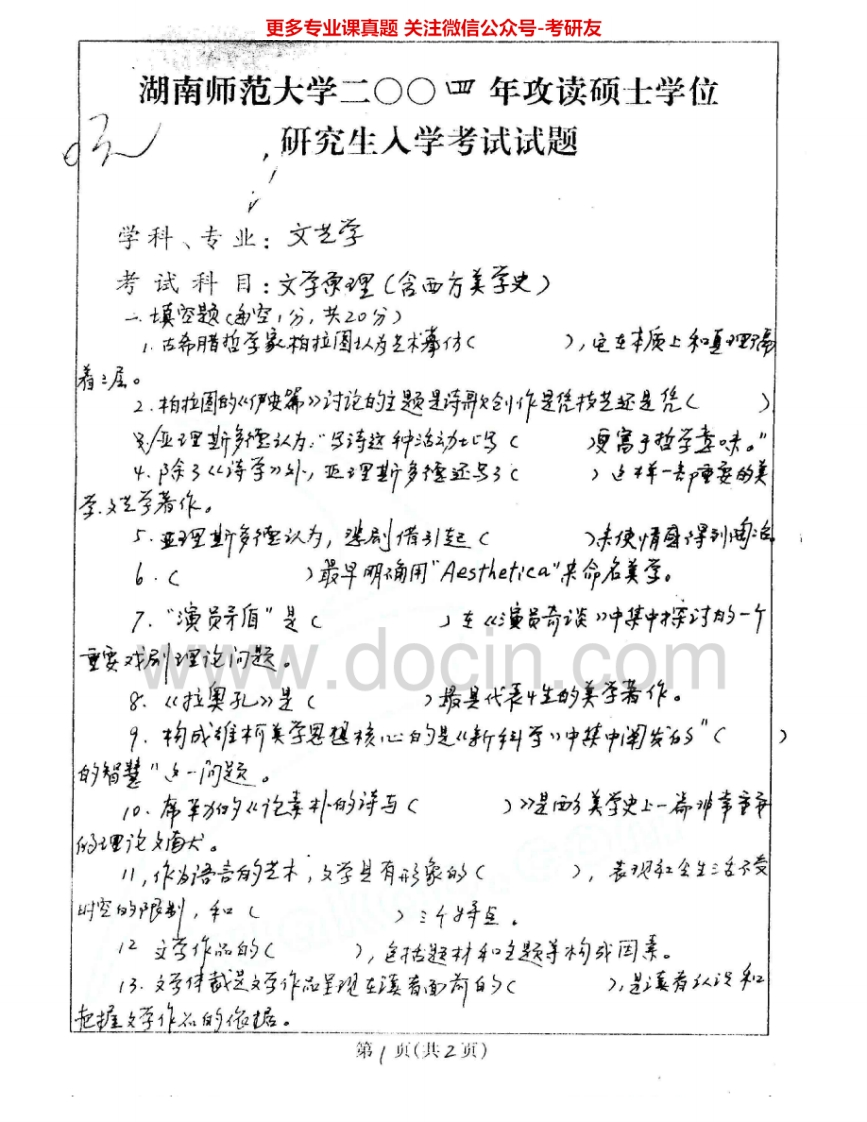 更多专业课真题 关注微信公众号-考研友
湖南师范大学二〇〇四年攻读硕士学位
研究生入学考试试题
学科、专业: 文艺学
考试科目: 文学原理(含西方美学史)
一.填空题(每空1分,共20分)
1.古希腊哲学家柏拉图认为艺术摹仿( ),它在本质上和真理隔
着三层。
2.柏拉图的《伊安篇》讨论的主题是诗歌创作是凭技艺还是凭( )
3.亚理斯多德认为:"写诗这种活动比写( )更富于哲学意味。"
4.除了《诗学》外,亚理斯多德还写了( )这样一部重要的美
学.文艺学著作。
5.亚理斯多德认为,悲剧借引起( )来使情感得到陶冶
6.( )最早明确用"Aesthetica"来命名美学。
7."演员矛盾"是( )在《演员奇谈》中集中探讨的一个
重要戏剧理论问题。
www.docin.com
8.《拉奥孔》是( )最具代表性的美学著作。
9.构成维柯美学思想核心的是《新科学》中集中阐发的"( )
的智慧"这一问题。
10.席勒的《论素朴的诗与( )》是西方美学史上一篇非常重要
的理论文献。
11,作为语言的艺术,文学具有形象的( ),表现社会生活不受
时空的限制,和( )三个特点.
12 文学作品的( ),包括题材和主题等构成因素。
13.文学体裁是文学作品呈现在读者面前的( ),是读者认识和
把握文学作品的依据。
第1页(共2页)